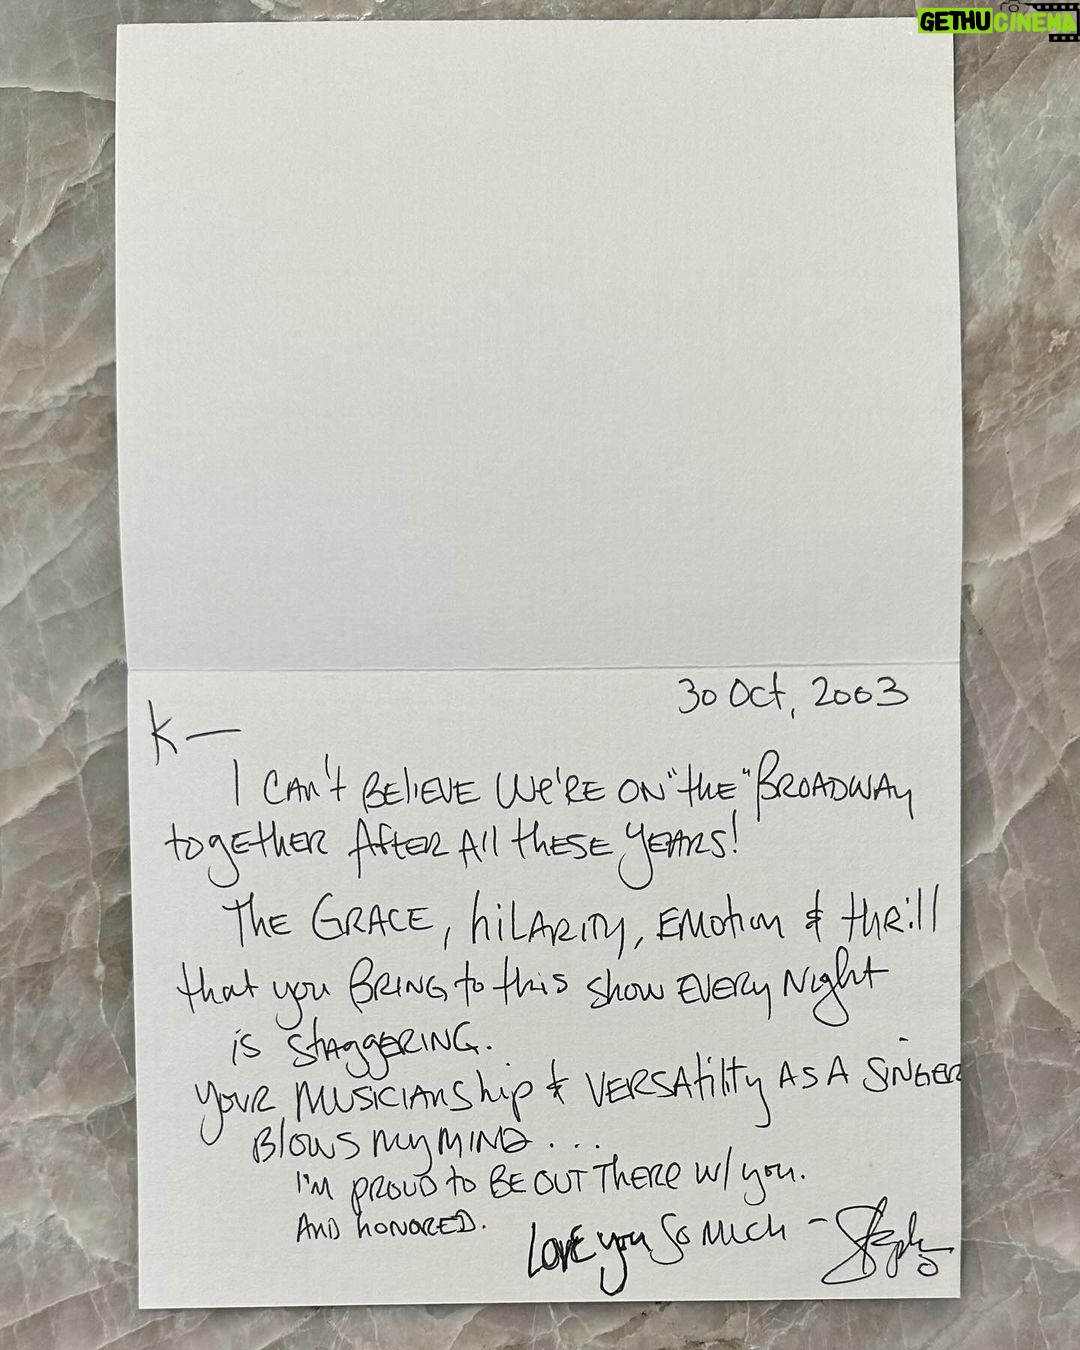 GETHUCINEMA
30 Oct, 2003
K—
I CAN'T BELIEVE WE'RE ON "THE" BROADWAY
together AFTER All these YEARS!
THE GRACE, hilARITY, EMOTION & thRill
that you BRING to this show EVERY Night
is staggERING.
YOUR MUSICIANShip & VERSAtility AS A SINGER
Blows my MIND...
I'm PROUD to BE OUT THERE w/ you.
AND honORED.
LOVE you So Much -